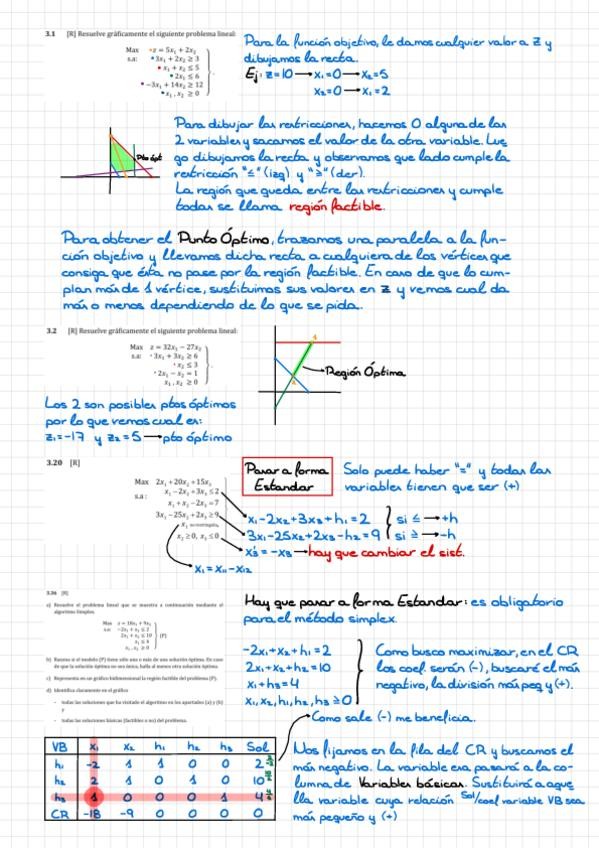 3.1 [R] Resuelve gráficamente el siguiente problema lineal:
Max z = 5x₁ + 2x₂
s.a: 3x₁ + 2x₂ ≥ 3
x₁ + x₂ ≤ 5
2x₁ ≤ 6
-3x₁ + 14x₂ ≥ 12
x₁, x₂ ≥ 0
Para la función objetivo, le damos cualquier valor a z y
dibujamos la recta.
Ej: z=10 → x₁=0 → x₂=5
x₂=0 → x₁=2
Pto ópt
Para dibujar las restricciones, hacemos 0 alguna de las
2 variables y sacamos el valor de la otra variable. Lue
go dibujamos la recta y observamos que lado cumple la
restricción "≤" (izq) y "≥" (der).
La región que queda entre las restricciones y cumple
todas se llama región factible.
Para obtener el Punto Óptimo, trazamos una paralela a la fun-
ción objetivo y llevamos dicha recta a cualquiera de los vértices que
consiga que ésta no pase por la región factible. En caso de que lo cum-
plan más de 1 vértice, sustituimos sus valores en z y vemos cual da
más o menos dependiendo de lo que se pida.
3.2 [R] Resuelve gráficamente el siguiente problema lineal:
Max z = 32x₁ - 27x₂
s.a: 3x₁ + 3x₂ ≥ 6
x₂ ≤ 3
2x₁ - x₂ = 1
x₁, x₂ ≥ 0
Región Óptima
Los 2 son posibles ptos óptimos
por lo que vemos cual es:
z₁=-17 y z₂=5 → pto óptimo
3.20 [R]
Max 2x₁ + 20x₂ + 15x₃
s.a: x₁ - 2x₂ + 3x₃ ≤ 2
x₁ + x₂ - 2x₃ = 7
3x₁ - 25x₂ + 2x₃ ≥ 9
x₁ no restringida,
x₂ ≥ 0, x₃ ≤ 0
Pasar a forma
Estandar
Solo puede haber "=" y todas las
variables tienen que ser (+)
x₁-2x₂+3x₃+h₁=2 } si ≤ → +h
3x₁-25x₂+2x₃-h₂=9 } si ≥ → -h
x₃'=-x₃ → hay que cambiar el sist.
x₁=x₁₁-x₁₂
3.36 [R]
a) Resuelve el problema lineal que se muestra a continuación mediante el
algoritmo Simplex.
Max z = 18x₁ + 9x₂
s.a: -2x₁ + x₂ ≤ 2
2x₁ + x₂ ≤ 10
x₁ ≤ 4
x₁, x₂ ≥ 0
(P)
b) Razona si el modelo (P) tiene sólo una o más de una solución óptima. En caso
de que la solución óptima no sea única, halla al menos otra solución óptima.
c) Representa en un gráfico bidimensional la región factible del problema (P).
d) Identifica claramente en el gráfico
- todas las soluciones que ha visitado el algoritmo en los apartados (a) y (b)
y
- todas las soluciones básicas (factibles o no) del problema.
Hay que pasar a forma Estandar: es obligatorio
para el método simplex.
-2x₁+x₂+h₁=2
2x₁+x₂+h₂=10
x₁+h₃=4
x₁,x₂,h₁,h₂,h₃≥0
Como busco maximizar, en el CR
los coef. serán (-), buscaré el más
negativo, la división más peq y (+).
Como sale (-) me beneficia.
VB x₁ x₂ h₁ h₂ h₃ Sol
h₁ -2 1 1 0 0 2
h₂ 2 1 0 1 0 10
h₃ 1 0 0 0 1 4
CR -18 -9 0 0 0 0
Nos fijamos en la fila del CR y buscamos el
más negativo. La variable esa pasará a la co-
lumna de Variables básicas. Sustituirá a aque
lla variable cuya relación Sol/coef variable VB sea
más pequeño y (+)